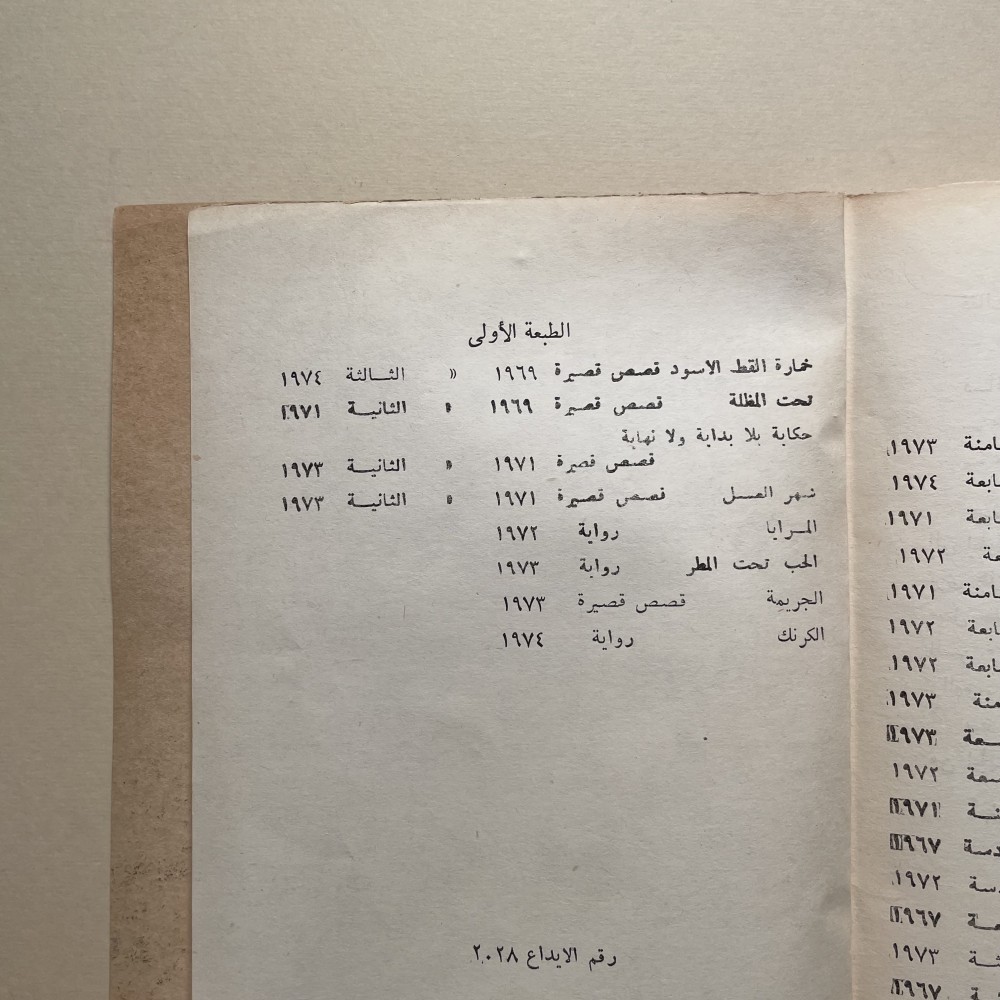 الطبعة الأولى
خمارة القط الاسود قصص قصيرة ١٩٦٩ » الثــالثة ١٩٧٤
تحت المظلة قصص قصيرة ١٩٦٩ » الثانيــة ١٩٧١
حكاية بلا بداية ولا نهاية
قصص قصيرة ١٩٧١ » الثانيــة ١٩٧٣
شهر العســل قصص قصيرة ١٩٧١ » الثانيــة ١٩٧٣
المــرايا رواية ١٩٧٢
الحب تحت المطر رواية ١٩٧٣
الجريمة قصص قصيرة ١٩٧٣
الكرنك رواية ١٩٧٤
رقم الايداع ٢٠٢٨
امنة ١٩٧٣
ابعة ١٩٧٤
ابعة ١٩٧١
عة ١٩٧٢
امنة ١٩٧١
ابعة ١٩٧٢
ابعة ١٩٧٢
منة ١٩٧٣
ـعة ١٩٧٣
سعة ١٩٧٢
نـة ١٩٧١
دسة ١٩٦٧
دسة ١٩٧٢
ـعة ١٩٦٧
ثـة ١٩٧٣
١٩٦٧